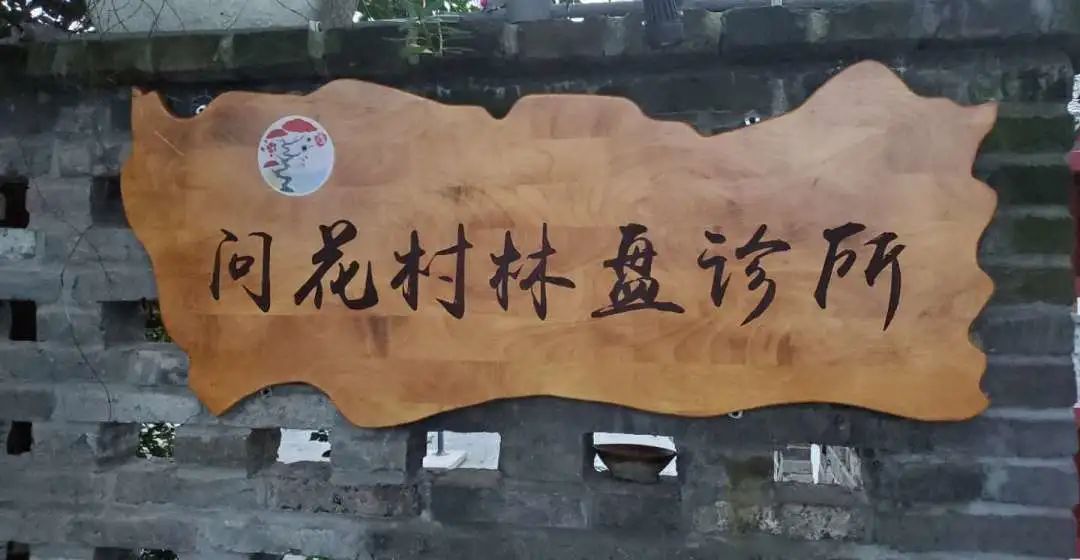 问花村林盘诊所